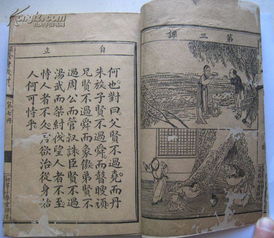 第三課
自立
何也對曰父賢不過堯而丹
朱放子賢不過舜而瞽瞍頑
兄賢不過舜而象傲弟賢不
過周公而管叔誅臣賢不過
湯武而桀紂伐望人者不至
恃人者不久君欲治從身始
人何可恃乎
第七冊